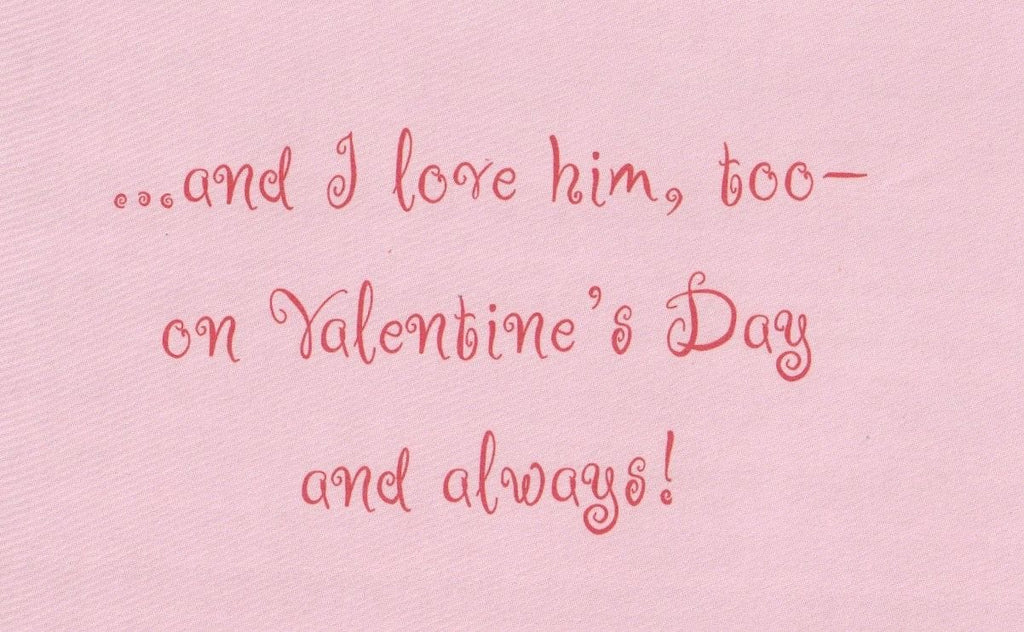 ...and I love him, too—
on Valentine's Day
and always!